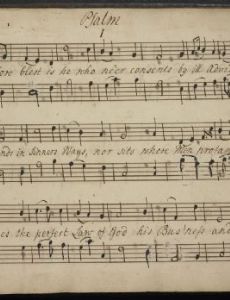 Psalm
1
blest is he who ne'er consents by ill Advi
in Sinners Ways, nor sits where Men profan
the perfect Law of God his Bus'ness and